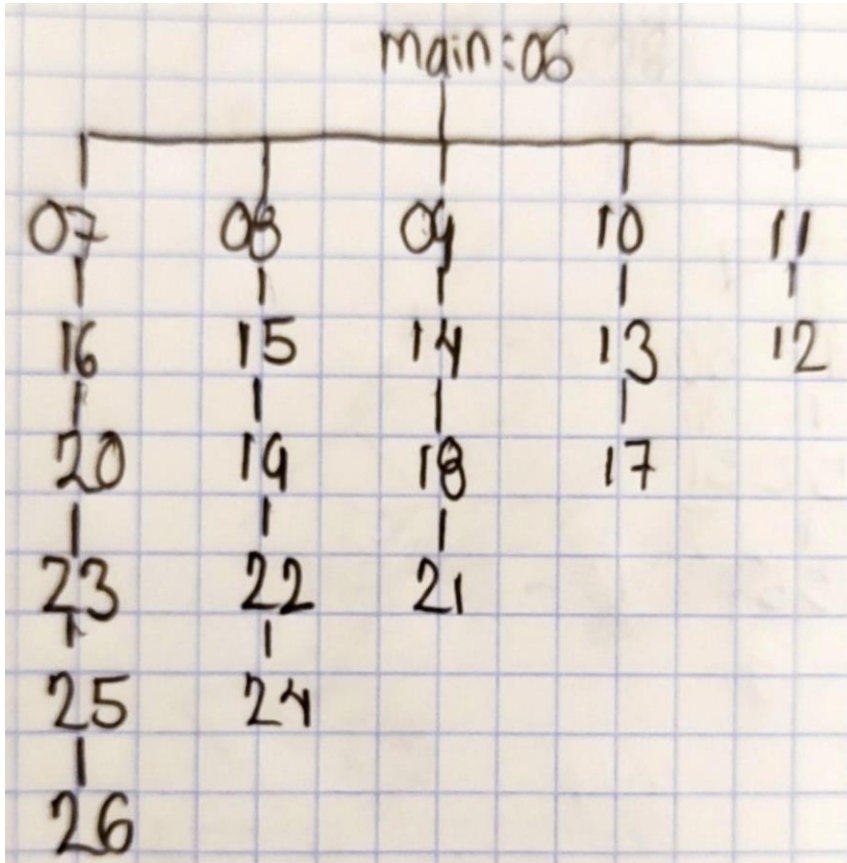 main:06
07 08 09 10 11
16 15 14 13 12
20 19 18 17
23 22 21
25 24
26